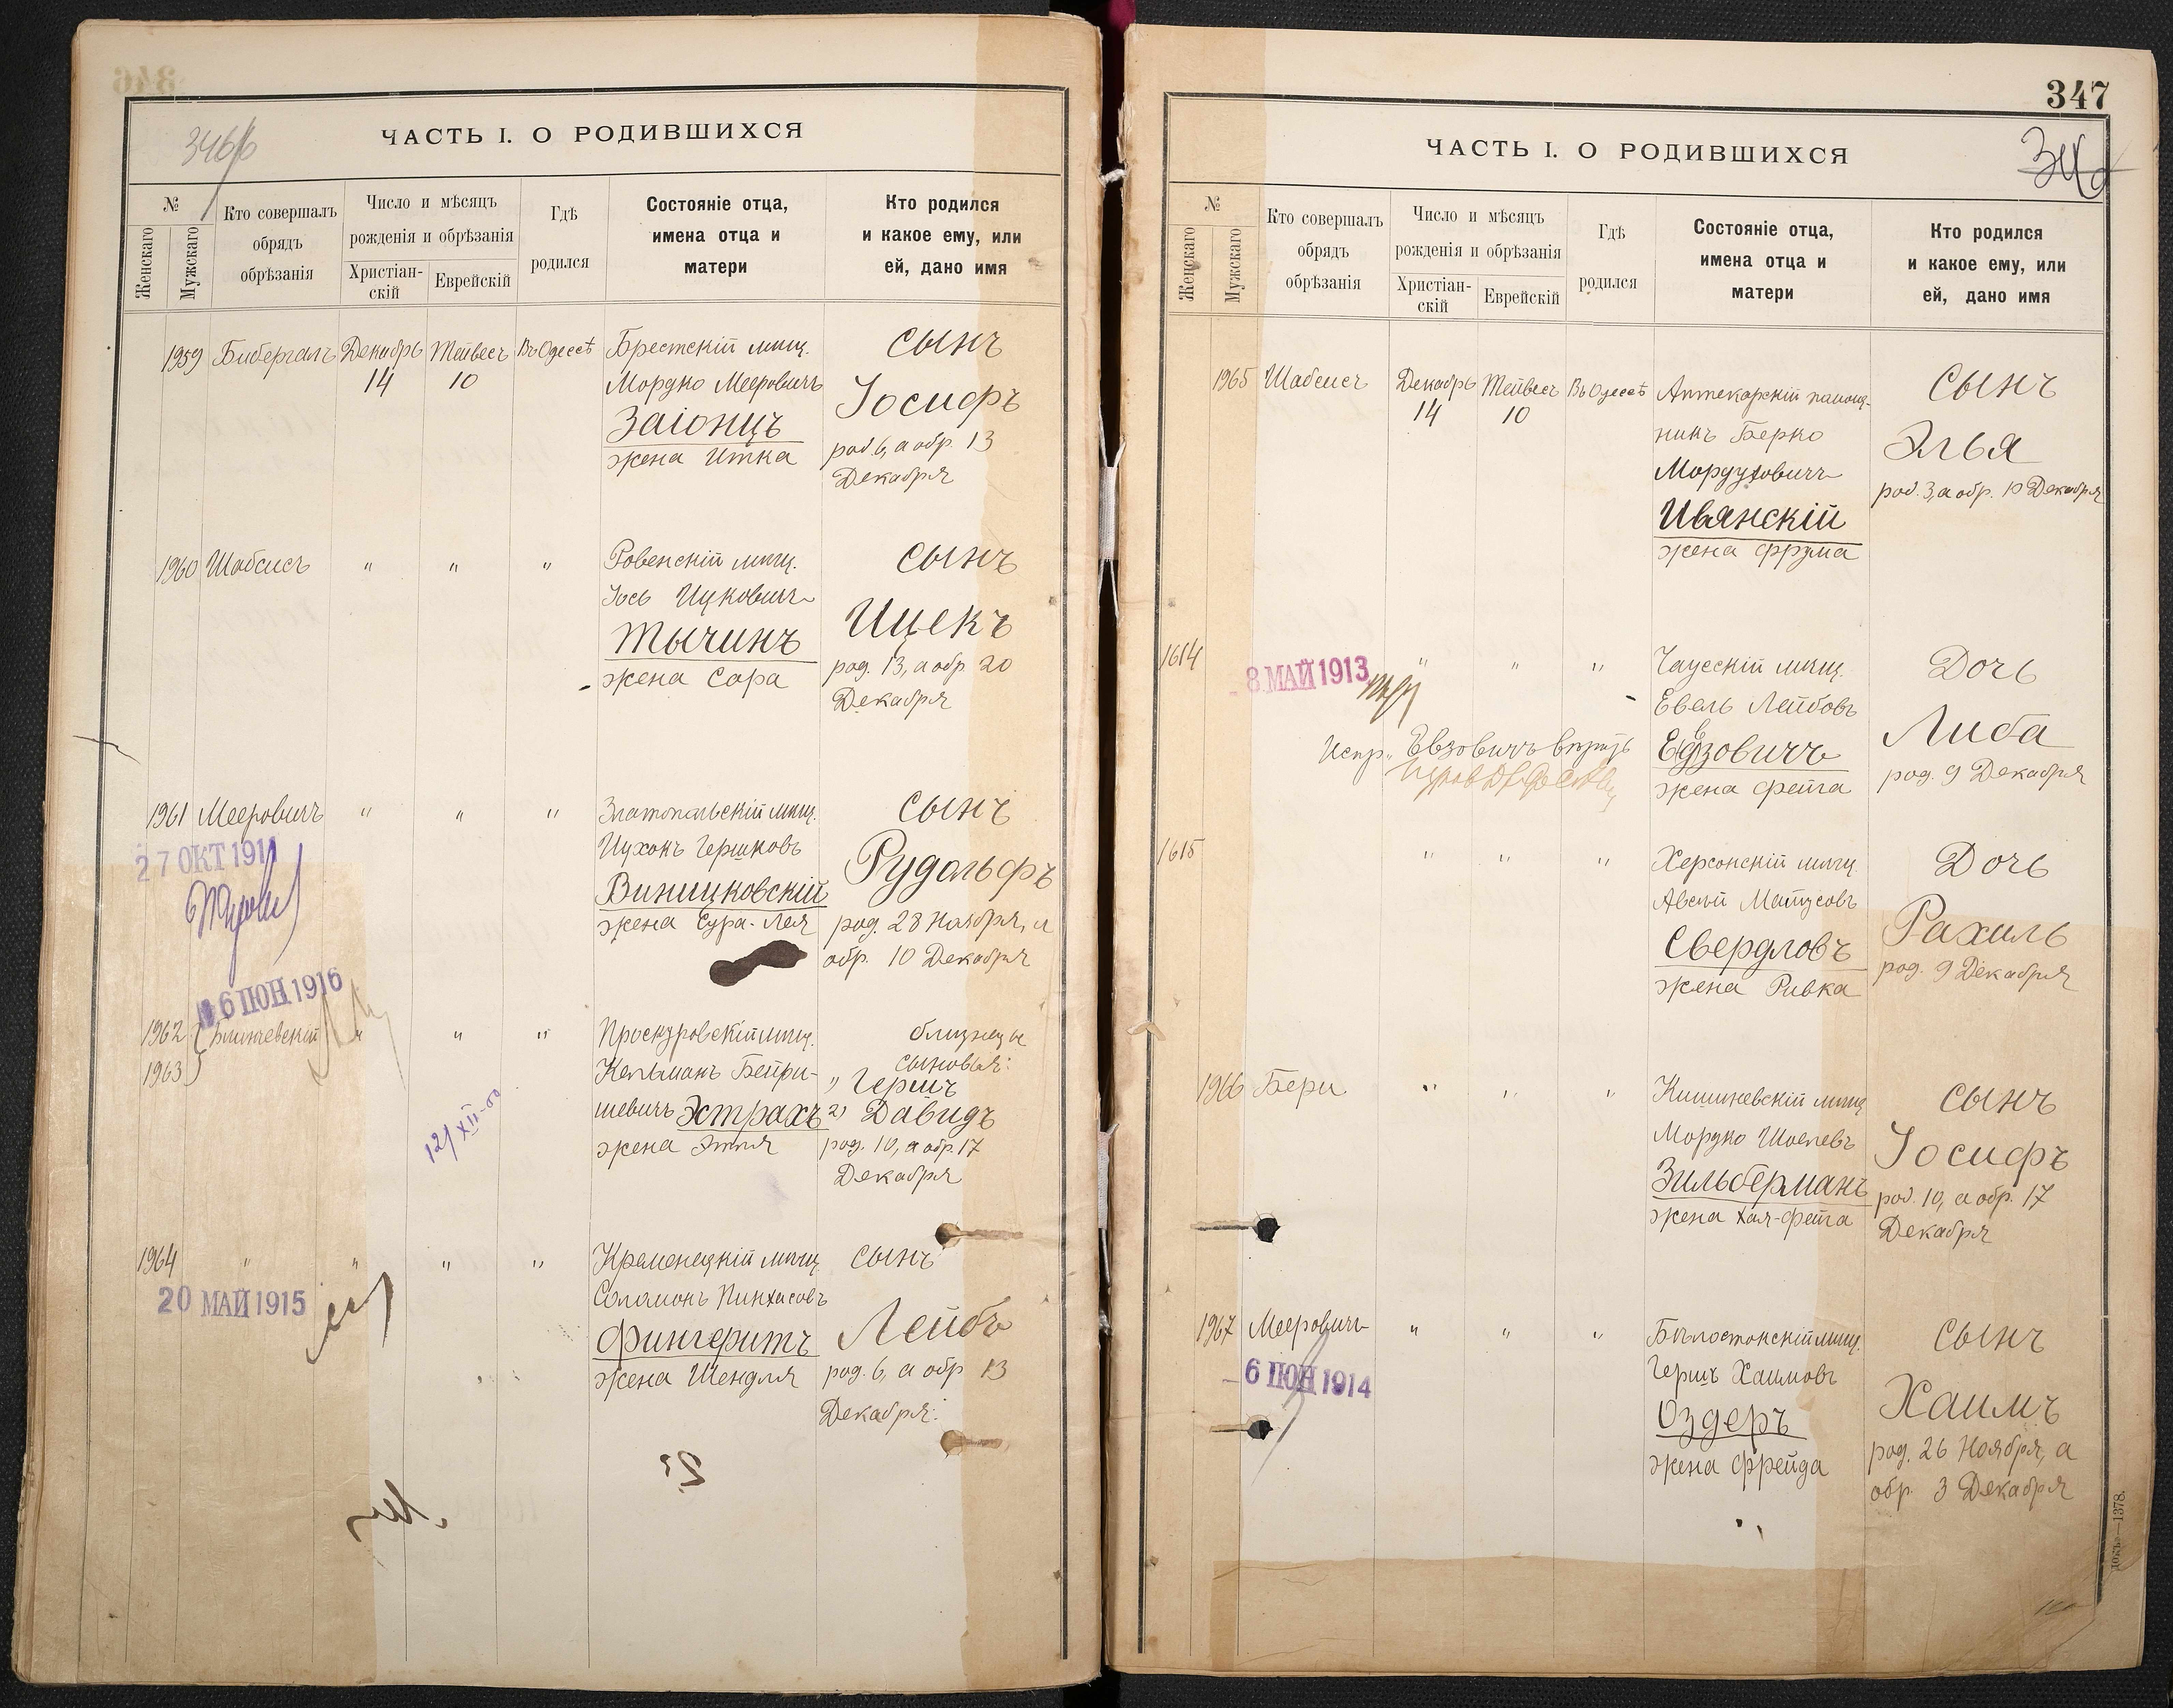 346
346б
ЧАСТЬ I. О РОДИВШИХСЯ
№
Женскаго
Мужскаго
Кто совершалъ
обрядъ
обрѣзанія
Число и мѣсяцъ
рожденія и обрѣзанія
Христіан-
скій
Еврейскій
Гдѣ
родился
Состояніе отца,
имена отца и
матери
Кто родился
и какое ему, или
ей, дано имя
1959 Бибергалъ Декабрь Тейвесъ Въ Одессѣ Брестскій мѣщ. сынъ
14 10 Мордко Мееровичъ Іосифъ
Заіонцъ род. 6, а обр. 13
жена Итка Декабря
1960 Шабсисъ " " " Ровенскій мѣщ. сынъ
Іось Ицковичъ Ицекъ
Тычинъ род. 13, а обр 20
жена Сора Декабря
1961 Мееровичъ " " " Златопольскій мѣщ. сынъ
27 ОКТ 1911 Ицхокъ Гершковъ Рудольфъ
Виницковскій
жена Сура-Лея род. 28 Ноября, а
обр. 10 Декабря
16 ІЮН 1916
1962 " " " Проскуровскій мѣщ. близнецы
1963 Кельманъ Бейри- сыновья:
" Гершъ
шевичъ Эстрахъ 2) Давидъ
12/XII-00
жена Этля род. 10, а обр. 17
Декабря
1964 " " " " Кременецкій мѣщ. сынъ
20 МАЙ 1915 Соломонъ Пинхасовъ Лейбъ
Фингеритъ
жена Шендля род. 6, а обр 13
Декабря
347
ЧАСТЬ I. О РОДИВШИХСЯ
№
Женскаго
Мужскаго
Кто совершалъ
обрядъ
обрѣзанія
Число и мѣсяцъ
рожденія и обрѣзанія
Христіан-
скій
Еврейскій
Гдѣ
родился
Состояніе отца,
имена отца и
матери
Кто родился
и какое ему, или
ей, дано имя
1965 Шабсисъ Декабрь Тейвесъ Въ Одессѣ Аптекарскій помощ- сынъ
14 10 никъ Берко Элья
Мордуховичъ род. 3, а обр. 10 Декабря
Ивянскій
жена Фрума
1614 8 МАЙ 1913 " " " Чаусскій мѣщ. Дочь
Евель Лейбовъ Либа
Испр. Евзовичъ вѣрить Евзовичъ
жена Фейга род. 9 Декабря
1615 " " " Херсонскій мѣщ. Дочь
Авсѣй Матусовъ Рахиль
Свердловъ род. 9 Декабря
жена Ривка
1966 Бери " " " Кишиневскій мѣщ. сынъ
Мордко Шоелевъ Іосифъ
Зильберманъ род. 10, а обр. 17
жена Хая-Фейга Декабря
1967 Мееровичъ " " " Бѣлостокскій мѣщ. сынъ
6 ІЮН 1914 Гершъ Хаимовъ Хаимъ
Оздеръ род. 26 Ноября, а
жена Фрейда обр. 3 Декабря